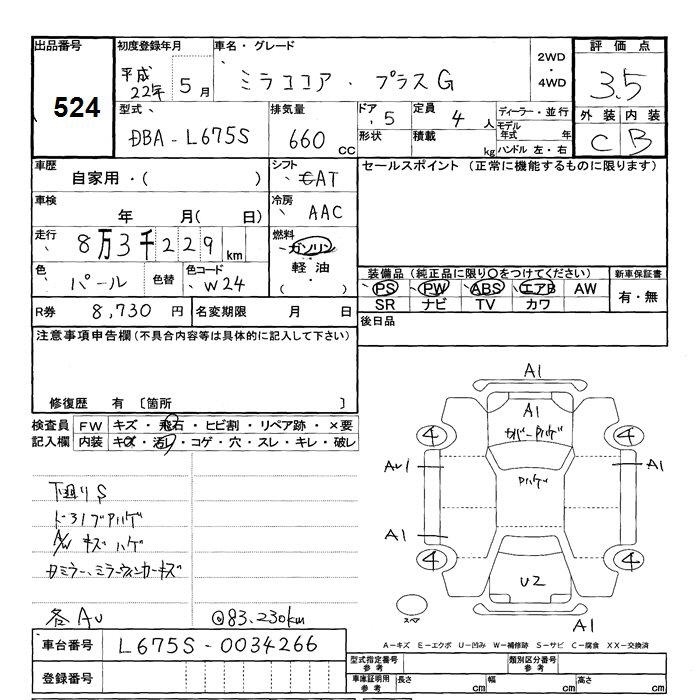 出品番号 初度登録年月 車名・グレード 2WD・4WD 評価点
524 平成22年 5月 ミラココア・プラスG 3.5
型式 排気量 ドア 定員 ディーラー・並行 外装 内装
DBA-L675S 660 CC 5 4人 モデル年式 年 C B
形状 積載 kg ハンドル 左・右
車歴 シフト セールスポイント (正常に機能するものに限ります)
自家用・( ) CAT
車検 冷房
年 月( 日) AAC
走行 燃料
8万3千229km ガソリン
軽油
( )
色 色替 色コード 装備品(純正品に限り〇をつけてください) 新車保証書
パール W24 PS PW ABS エアB AW 有・無
SR ナビ TV カワ
R券 8,730円 名変期限 月 日 後日品
注意事項申告欄(不具合内容等は具体的に記入して下さい)
修復歴 有 〔箇所 〕
検査員 FW キズ・飛石・ヒビ割・リペア跡・×要
記入欄 内装 キズ・汚レ・コゲ・穴・スレ・キレ・破レ
A1
A1
カバーハゲ
4 4
ハゲ
AU1 A1
A1
4 4
U2
スペア A1
下廻りS
ドアノブハゲ
A/W キズ ハゲ
各AU ◎83.230km
A−キズ E−エクボ U−凹み W−補修跡 S−サビ C−腐食 XX−交換済
車台番号 L675S-0034266
登録番号
型式指定番号 参考 類別区分番号 参考
車庫証明用 参考 長さ cm 幅 cm 高さ cm